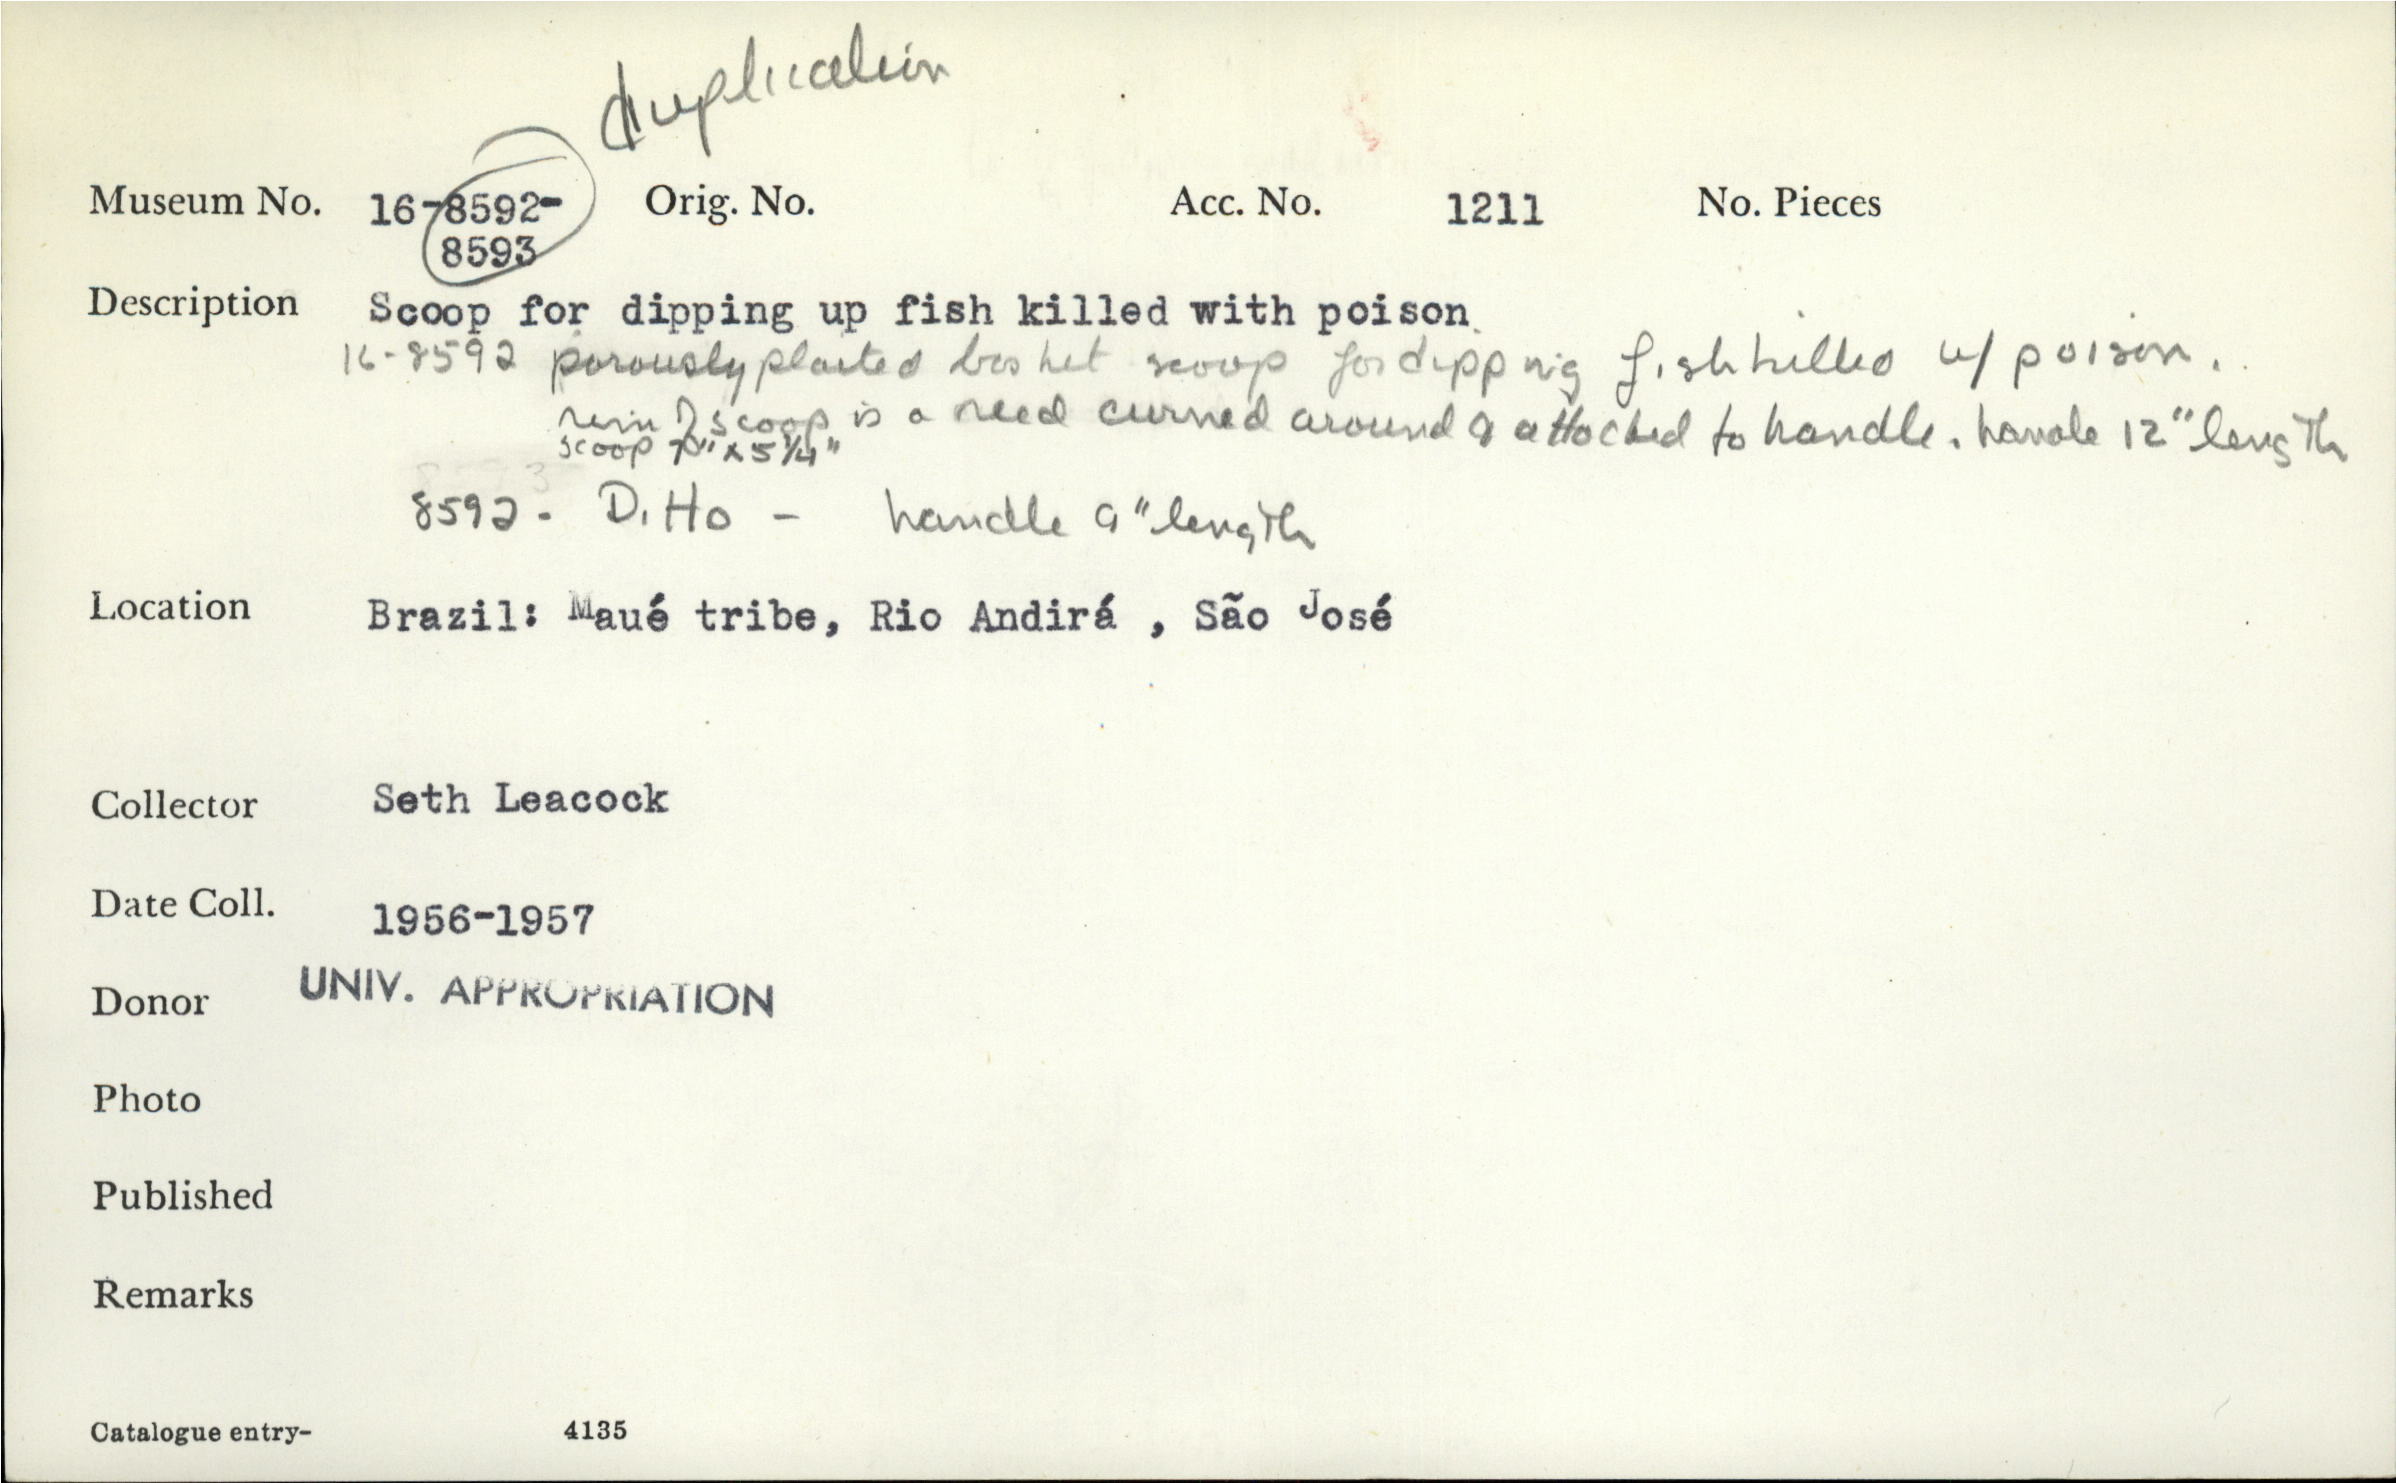 duplication
Museum No. 16-8592- Orig. No. Acc. No. 1211 No. Pieces
8593
Description Scoop for dipping up fish killed with poison.
16-8592 porously plaited basket scoop for dipping fish killed w/ poison.
rim of scoop is a reed curved around & attached to handle. handle 12" length
scoop 7" x 5 1/4"
8592 - Ditto - handle 9" length
Location Brazil: Maué tribe, Rio Andirá , São José
Collector Seth Leacock
Date Coll. 1956-1957
Donor UNIV. APPROPRIATION
Photo
Published
Remarks
Catalogue entry- 4135